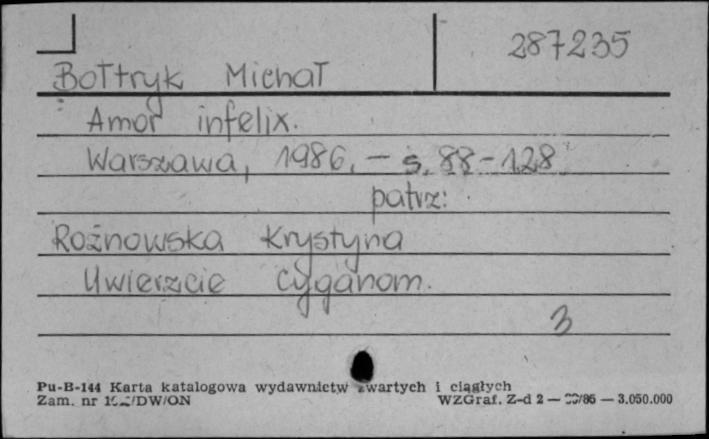 287235
Bołtryk Michał
Amor infelix.
Warszawa, 1986. – s. 88-128
patrz:
Rożnowska Krystyna
Uwierzcie cyganom.
3
Pu-B-144 Karta katalogowa wydawnictw zwartych i ciągłych
Zam. nr /DW/ON WZGraf. Z-d 2 — /86 — 3.050.000